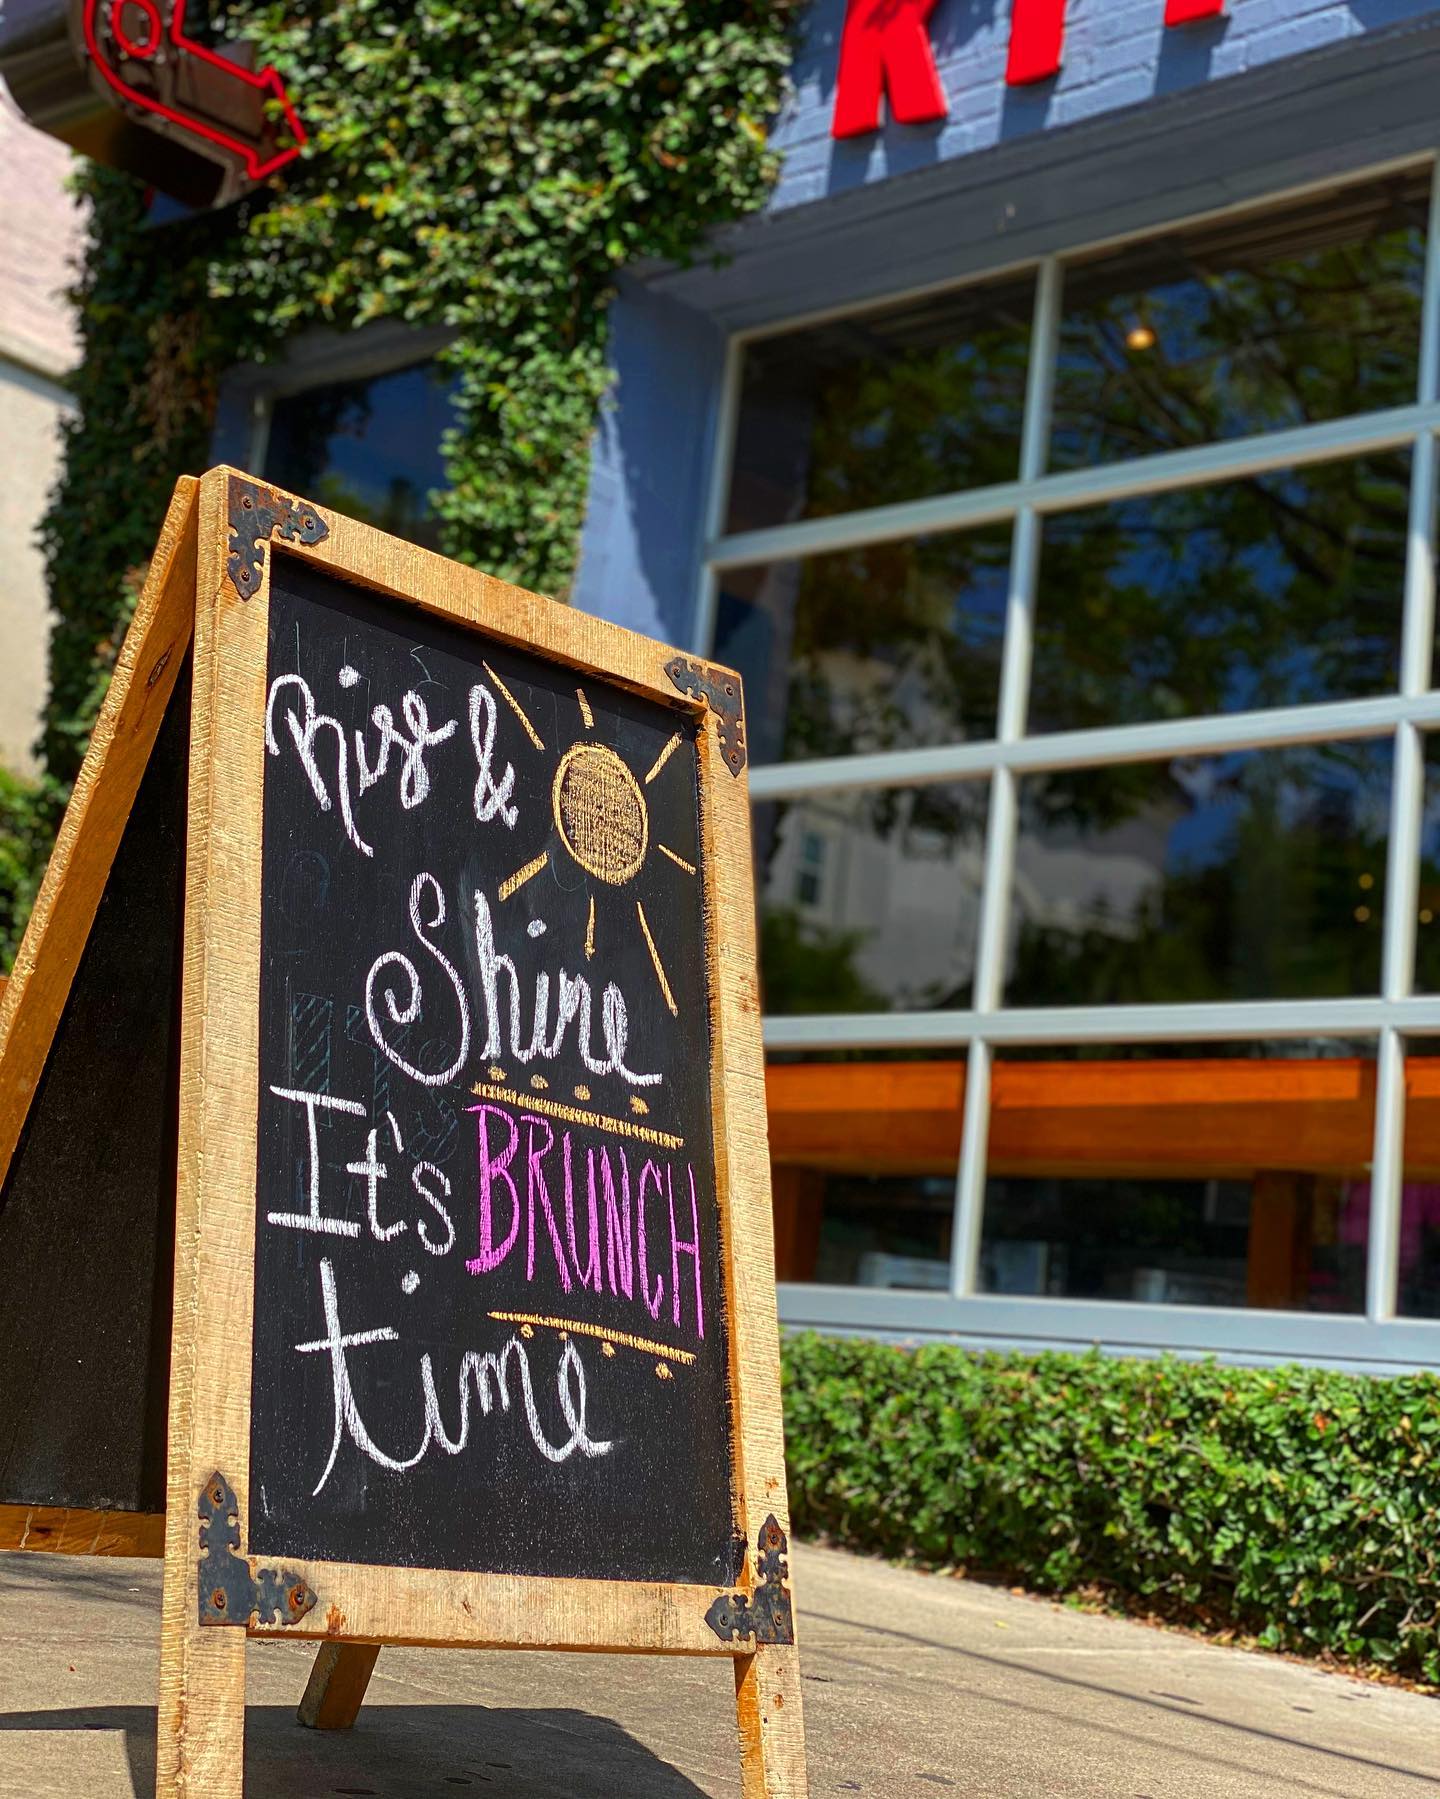 Rise &
Shine
It's BRUNCH
time